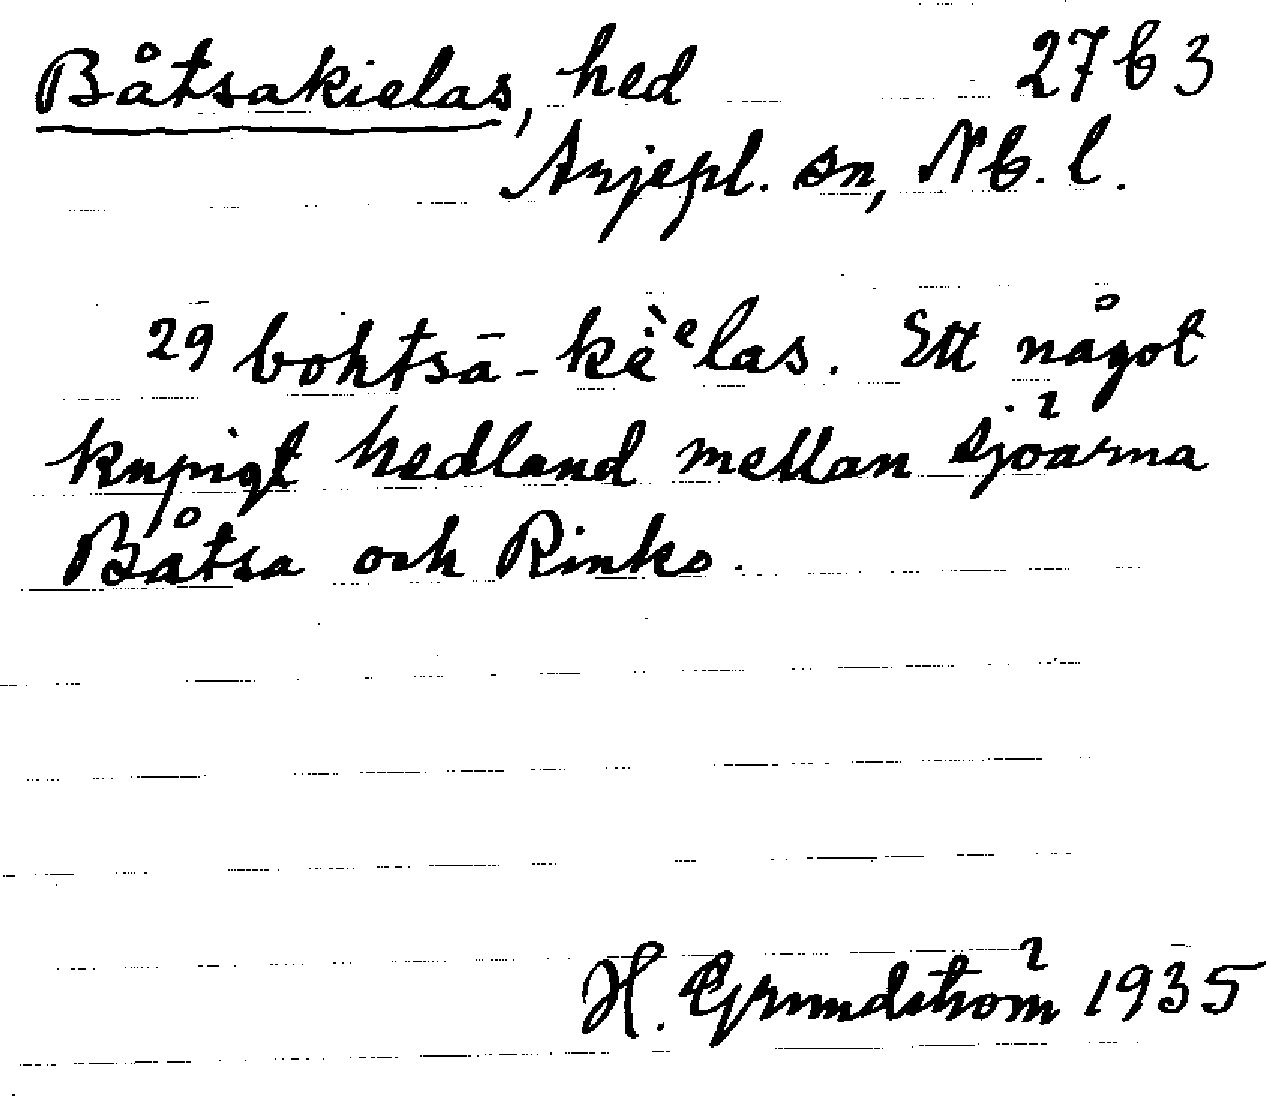 Båtsakielas, hed 27 b 3
Arjepl. sn, Nb. l.
29 bohtsā-kẹ̀ᵉlas. Ett något
knpigt hedland mellan sjöarna
Båtsa och Rinko.
H. Grundström 1935